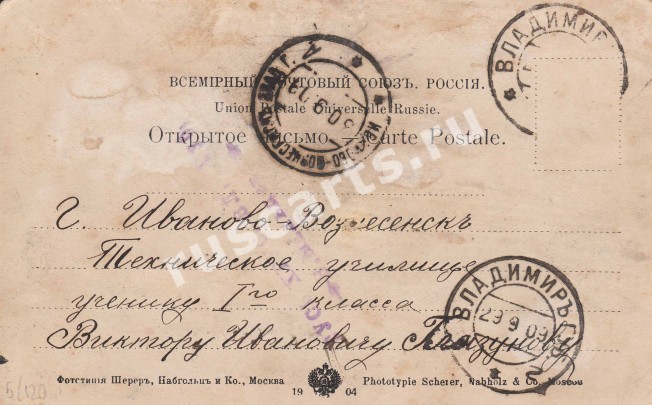 ВСЕМІРНЫЙ ПОЧТОВЫЙ СОЮЗЪ. РОССІЯ.
Union Postale Universelle Russie.
Открытое письмо — Carte Postale.
ВЛАДИМИР
г. Иваново-Вознесенскъ
Техническое училище
ученику Iго класса
Виктору Ивановичу
ВЛАДИМИРЪ
29 9 09
2
Фототипія Шереръ, Набгольцъ и Ко., Москва
Phototypie Scherer, Nabholz & Co. Moscou
19 04
5/120
ruscarts.ru